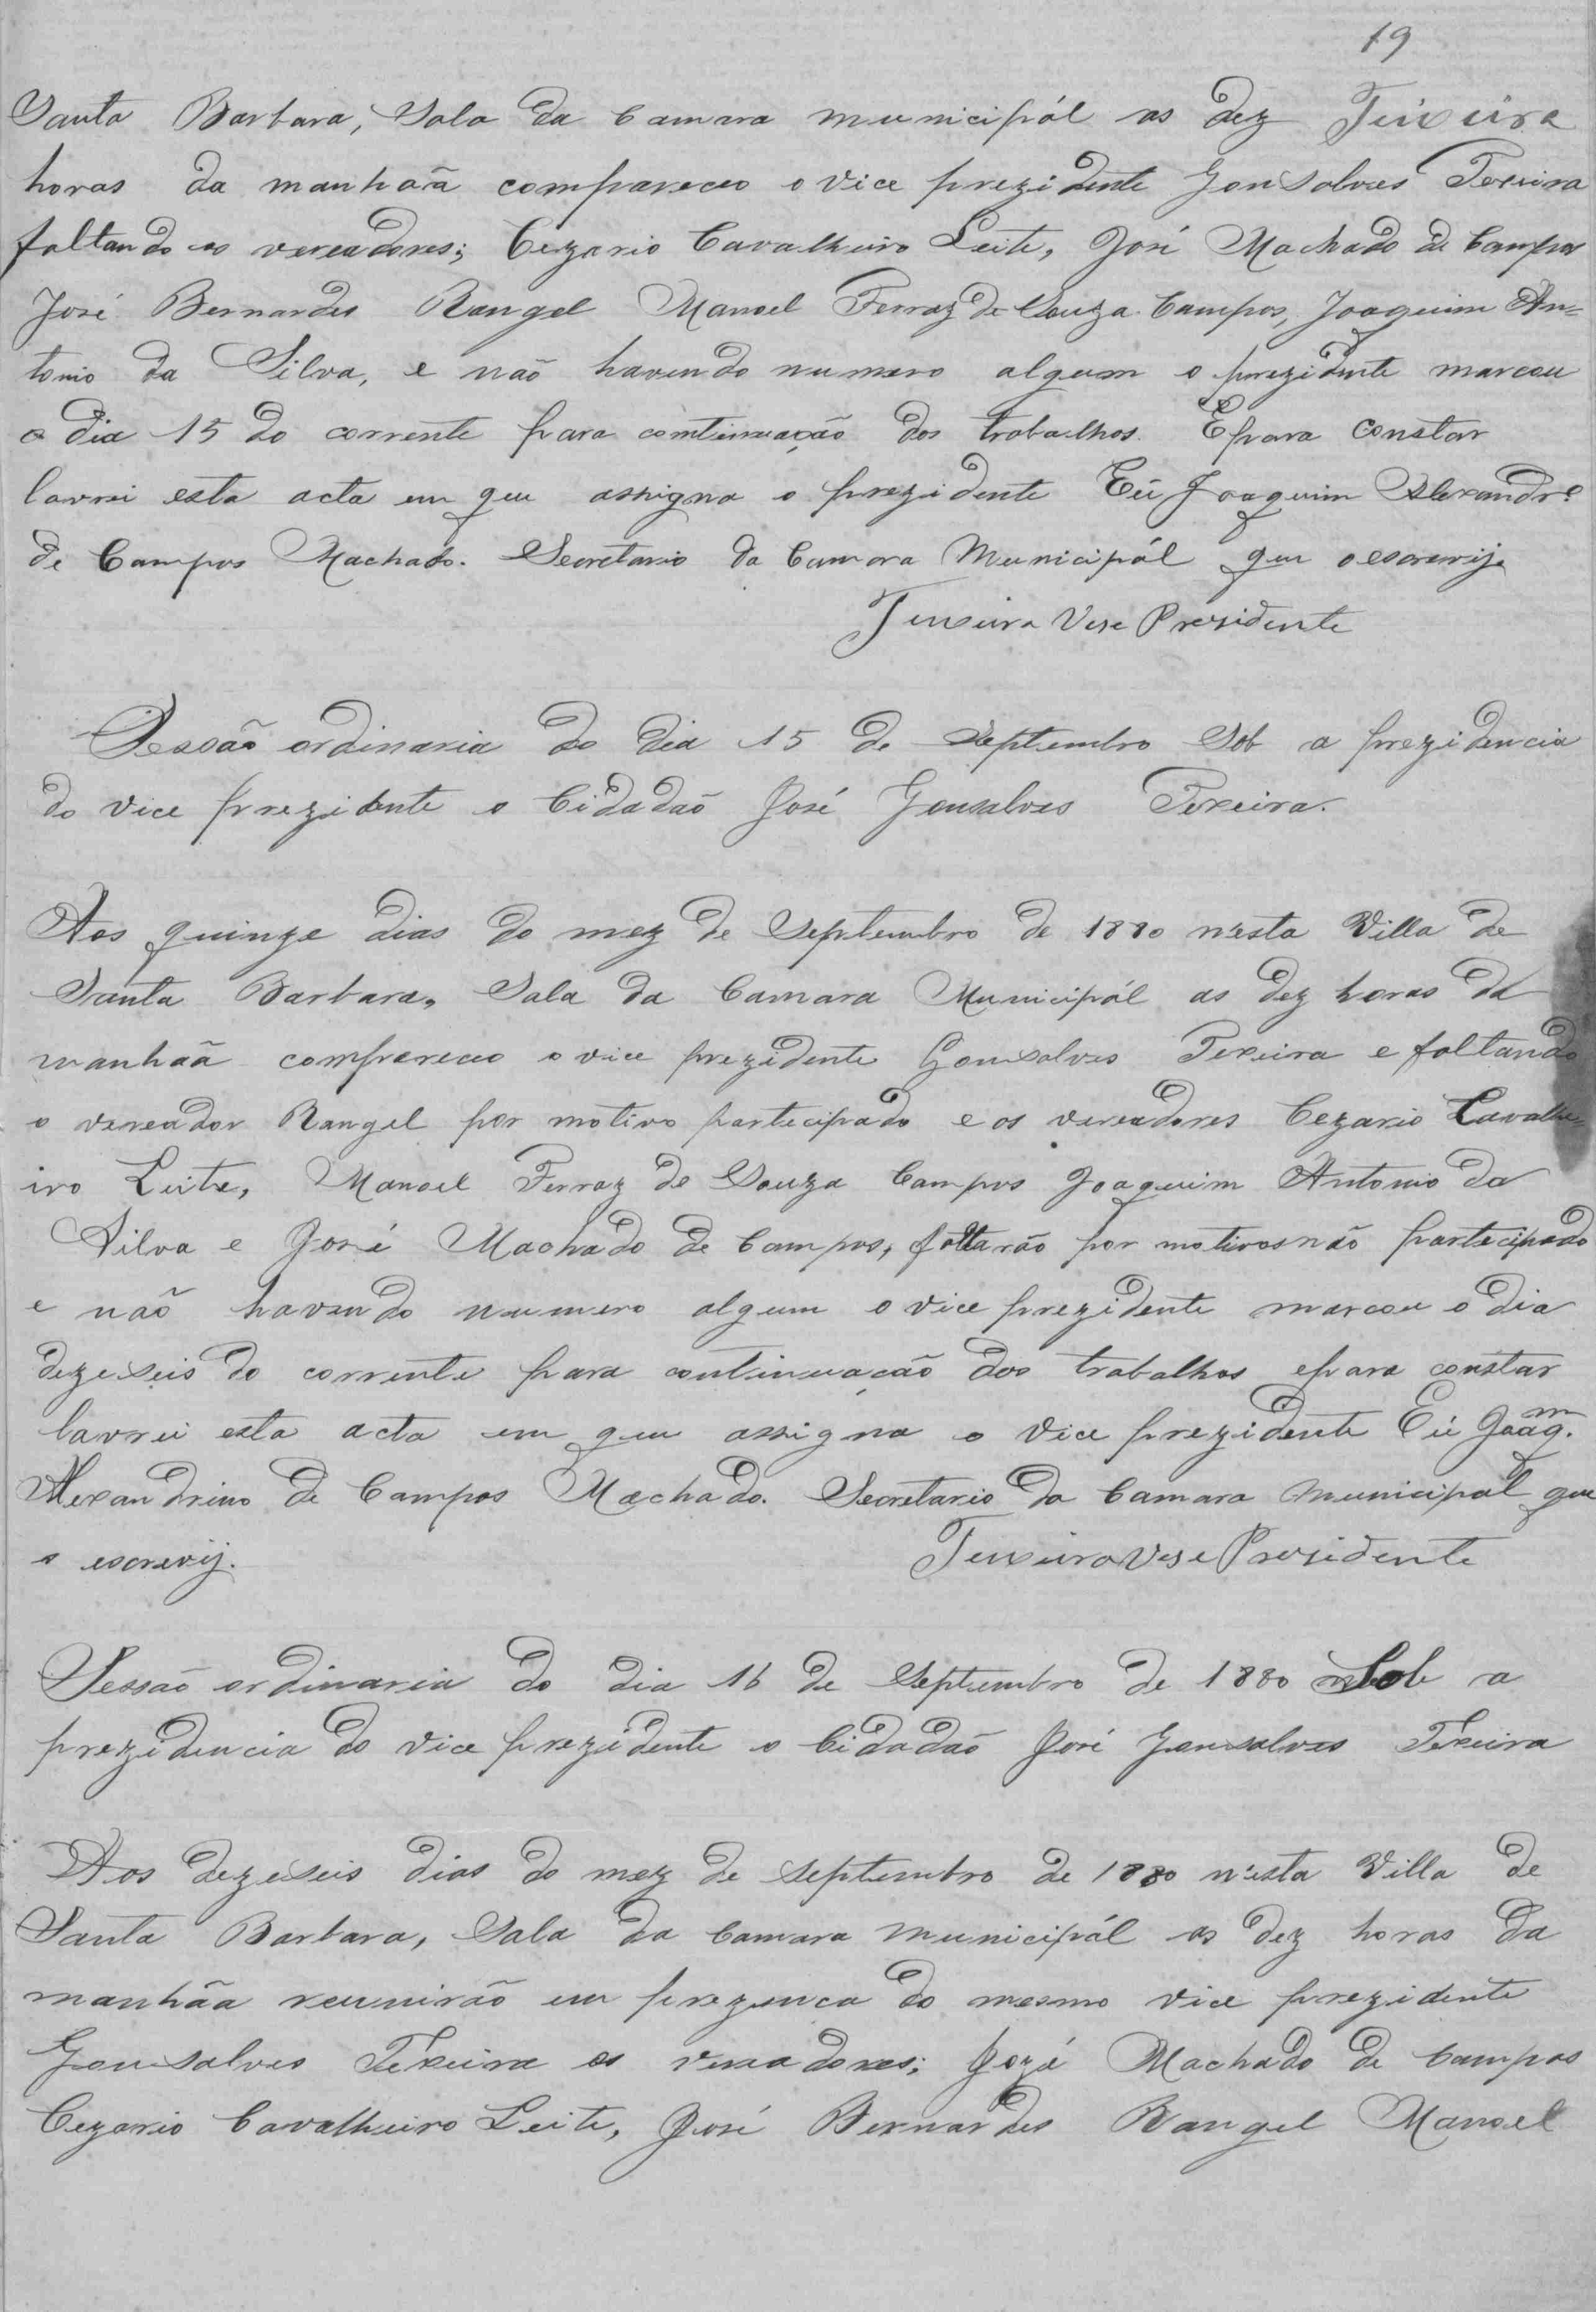 19
Santa Barbara, Sala da Camara municipál as dez Teixeira
horas da manhaã compareceo o vice prezidente Gonsalves Texeira
faltando os vereadores; Cezario Cavalheiro Leite, José Machado de Campos
José Bernardes Rangel Manoel Ferraz de Souza Campos, Joaquim An=
tonio da Silva, e não havendo numero algum o prezidente marcou
o dia 15 do corrente para comtinuação dos trabalhos. E para constar
lavrei esta acta em que assigna o prezidente Eú Joaquim Alexandr.º
de Campos Machado. Secretario da Camara Municipál que o escrevij.
Teixeira Vise Presidente
Sessão ordinaria do dia 15 de Septembro Sob a prezidencia
do vice prezidente o Cidadão José Gonsalves Texeira.
Aos quinze dias do mez de Septembro de 1880 n'esta Villa de
Santa Barbara, Sala da Camara Municipál as dez horas da
manhaã compareceo o vice prezidente Gonsalves Texeira e faltando
o vereador Rangel por motivo partecipado e os vereadores Cezario Cavalhe
iro Leite, Manoel Ferraz de Souza Campos Joaquim Antonio da
Silva e José Machado de Campos, faltarão por motivos não partecipado
e não havendo numero algum o vice prezidente marcou o dia
dezeseis do corrente para continuação dos trabalhos e para constar
lavrei esta acta em que assigna o vice prezidente Eú Joaq.m
Alexandrino de Campos Machado. Secretario da Camara Municipal que
o escrevij.
Teixeira Vise Presidente
Sessão ordinaria do dia 16 de Septembro de 1880 Sob a
prezidencia do vice prezidente o Cidadão José Gonsalves Texeira
Aos dezeseis dias do mez de Septembro de 1880 n'esta Villa de
Santa Barbara, Sala da Camara Municipál as dez horas da
manhãa reunirão em prezenca do mesmo vice prezidente
Gonsalves Texeira os vereadores; Jozé Machado de Campos
Cezario Cavalheiro Leite, José Bernardes Rangel Manoel